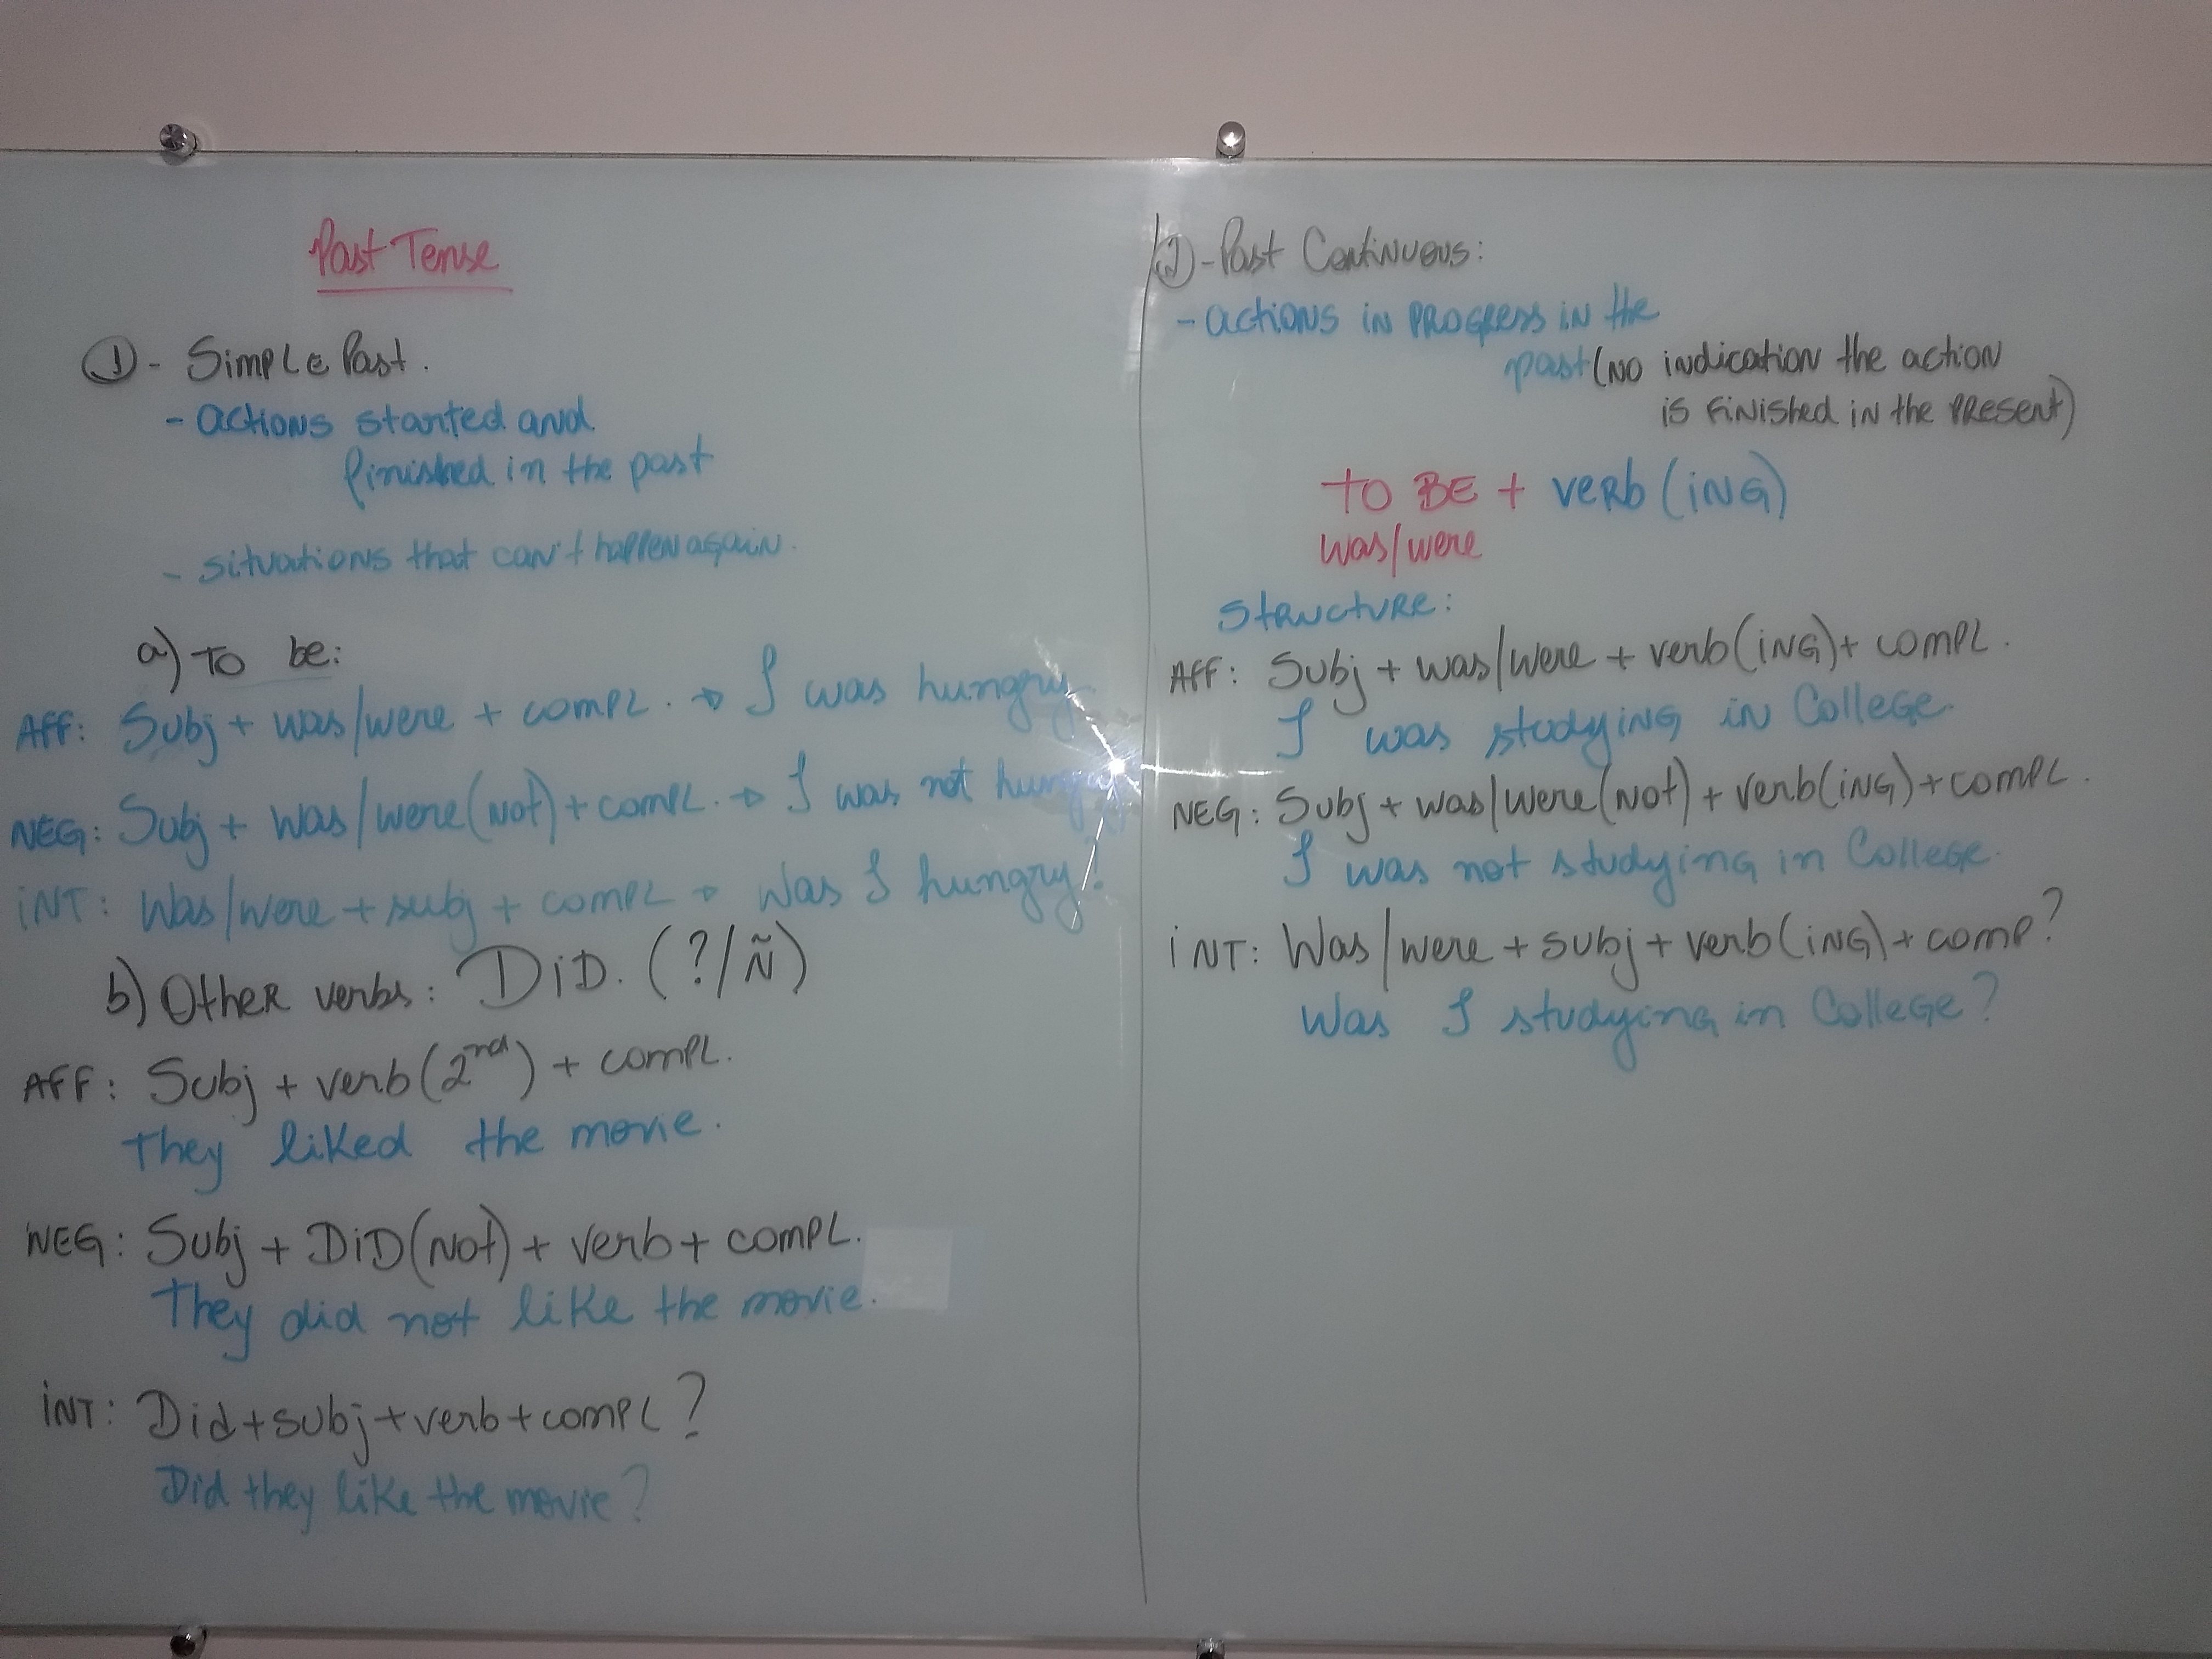 Past Tense
① - Simple Past.
- actions started and
finished in the past
- situations that can't happen again.
a) To be:
AFF: Subj + was/were + compl. → I was hungry
NEG: Subj + was/were (not) + compl. → I was not hungry
INT: Was/were + subj + compl → Was I hungry?
b) Other verbs: DID. (?/Ñ)
AFF: Subj + verb (2nd) + compl.
They liked the movie.
NEG: Subj + DID (not) + verb + compl.
They did not like the movie.
INT: Did + subj + verb + compl?
Did they like the movie?
② - Past Continuous:
- actions in progress in the
past (no indication the action
is finished in the present)
TO BE + verb (ING)
was/were
Structure:
AFF: Subj + was/were + verb (ING) + compl.
I was studying in College.
NEG: Subj + was/were (not) + verb (ING) + compl.
I was not studying in College.
INT: Was/were + subj + verb (ING) + comp?
Was I studying in College?